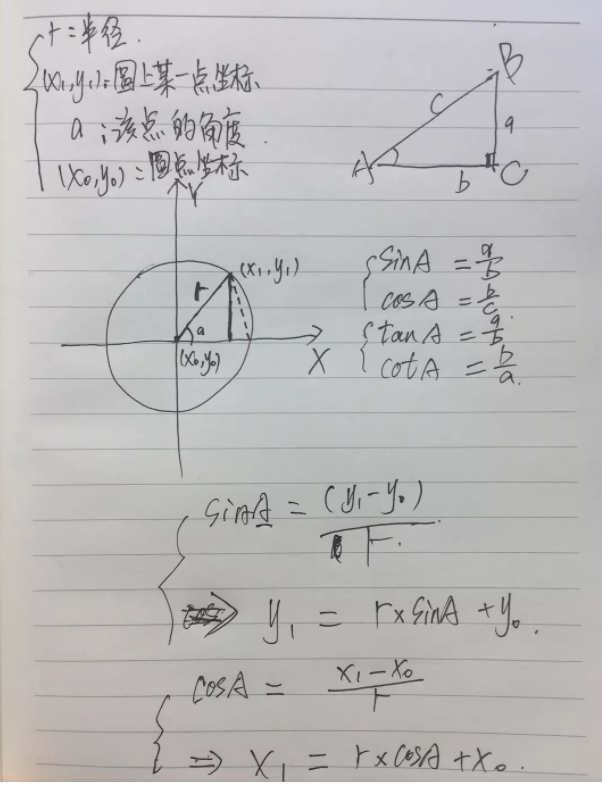 r = 半径.
(x₁,y₁): 圆上某一点坐标
a : 该点的角度.
(x₀,y₀) = 圆点坐标
B
c
a
A
b
C
Y
(x₁,y₁)
r
a
(x₀,y₀)
X
sinA = a/b
cosA = b/c
tanA = a/b
cotA = b/a.
sinA = (y₁-y₀)/r.
⇒ y₁ = r×sinA + y₀.
cosA = x₁-x₀/r
⇒ x₁ = r×cosA + x₀.